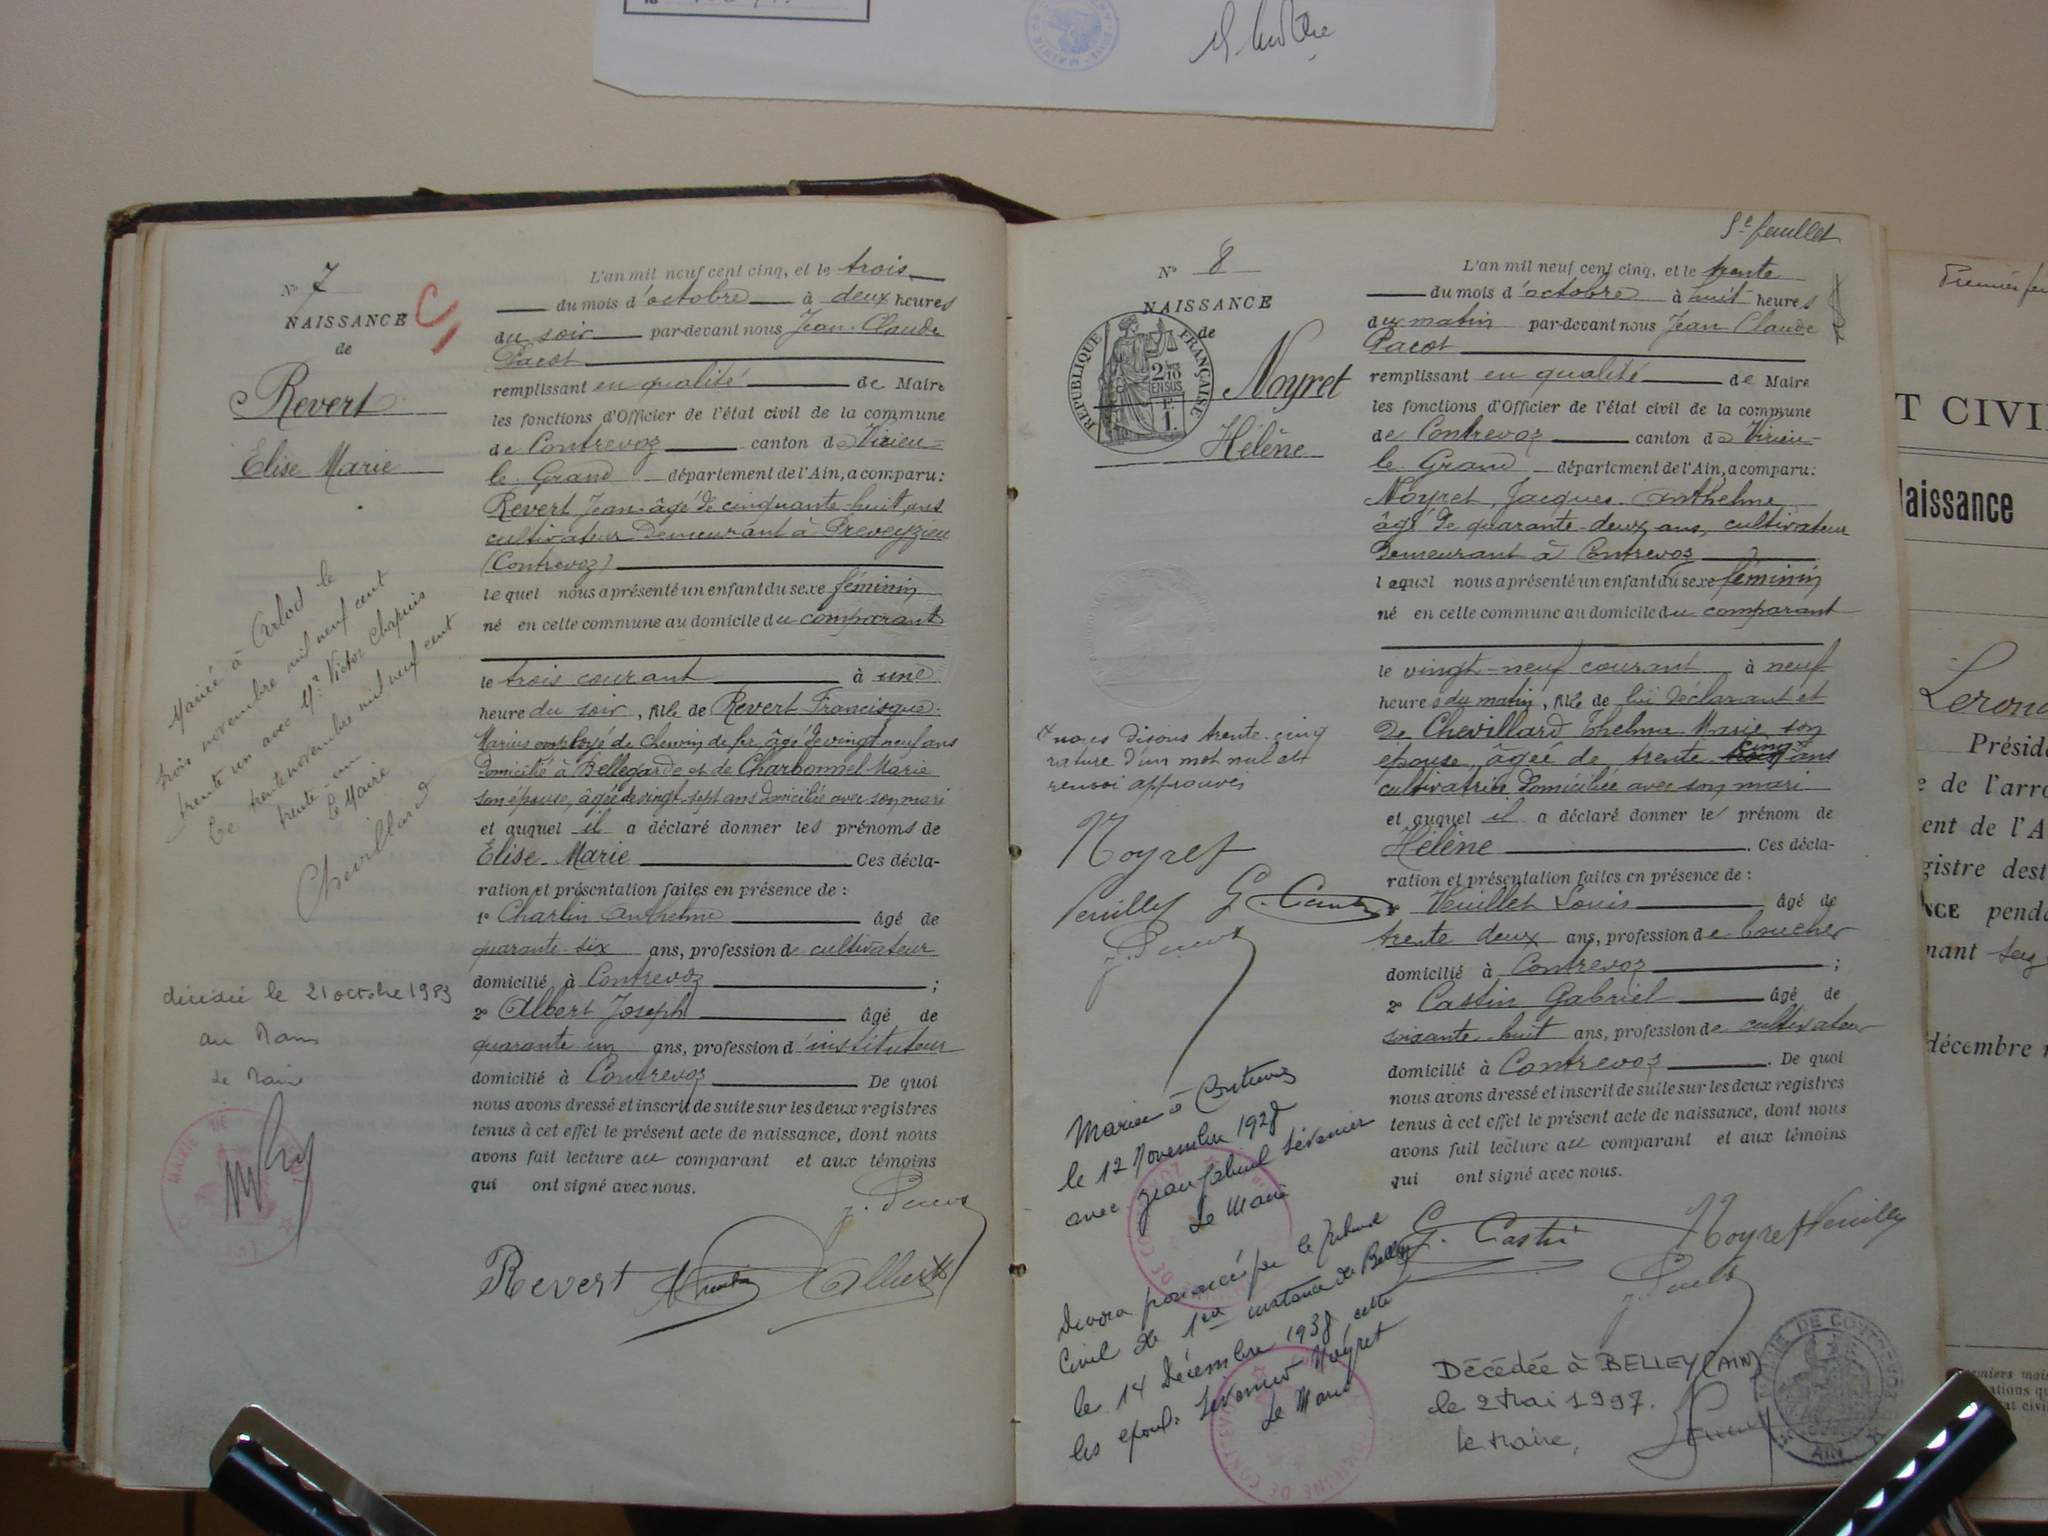 N° 7
NAISSANCE
de
Revert
Elise Marie
Mariée à Arlod le
trois novembre mil neuf cent
trente un avec Mr Victor Chapuis
Le trente novembre mil neuf cent
trente-un
Le Maire
Chevillard
décédée le 21 octobre 1983
au Mans
Le Maire
L'an mil neuf cent cinq, et le trois
du mois d'octobre à deux heures
du soir par-devant nous Jean-Claude
Pacot
remplissant en qualité de Maire
les fonctions d'Officier de l'état civil de la commune
de Contrevoz canton de Virieu-
le Grand département de l'Ain, a comparu:
Revert Jean âgé de cinquante-huit ans
cultivateur demeurant à Preveyzieu
(Contrevoz)
lequel nous a présenté un enfant du sexe féminin
né en cette commune au domicile du comparant
le trois courant à une
heure du soir, fille de Revert Francisque
Marius employé de chemin de fer âgé de vingt neuf ans
domicilié à Bellegarde et de Charbonnel Marie
son épouse, âgée de vingt-sept ans domiciliée avec son mari
et auquel il a déclaré donner les prénoms de
Elise-Marie Ces décla-
ration et présentation faites en présence de :
1° Charlin Anthelme âgé de
quarante-six ans, profession de cultivateur
domicilié à Contrevoz ;
2° Albert Joseph âgé de
quarante-un ans, profession d'instituteur
domicilié à Contrevoz De quoi
nous avons dressé et inscrit de suite sur les deux registres
tenus à cet effet le présent acte de naissance, dont nous
avons fait lecture au comparant et aux témoins
qui ont signé avec nous.
Revert Albert
5e feuillet
N° 8
NAISSANCE
de
RÉPUBLIQUE FRANÇAISE
2/10 EN SUS
F.
1.
Noyret
Hélène
disons trente-cinq
rature d'un mot nul et
renvoi approuvés
Noyret
Mariée à Contrevoz
le 12 Novembre 1928
avec Jean Gabriel Sévenier
Le Maire
Divorce prononcé par le Tribunal
Civil de 1ère instance de Belley
le 14 Décembre 1938 entre
les époux Sévenier Noyret
Le Maire
L'an mil neuf cent cinq, et le trente
du mois d'octobre à huit heures
du matin par-devant nous Jean Claude
Pacot
remplissant en qualité de Maire
les fonctions d'Officier de l'état civil de la commune
de Contrevoz canton de Virieu-
le Grand département de l'Ain, a comparu:
Noyret, Jacques Anthelme
âgé de quarante-deux ans, cultivateur
demeurant à Contrevoz
lequel nous a présenté un enfant du sexe féminin
né en cette commune au domicile du comparant
le vingt-neuf courant à neuf
heures du matin, fille de lui déclarant et
de Chevillard Thelma Marie son
épouse, âgée de trente cinq ans
cultivatrice domiciliée avec son mari
et auquel il a déclaré donner le prénom de
Hélène. Ces décla-
ration et présentation faites en présence de :
1° Veuillet Louis âgé de
trente deux ans, profession de boucher
domicilié à Contrevoz ;
2° Castin Gabriel âgé de
soixante huit ans, profession de cultivateur
domicilié à Contrevoz. De quoi
nous avons dressé et inscrit de suite sur les deux registres
tenus à cet effet le présent acte de naissance, dont nous
avons fait lecture au comparant et aux témoins
qui ont signé avec nous.
G. Castin Noyret
Décédée à BELLEY (AIN)
le 2 Mai 1997.
le Maire,
MAIRIE DE CONTREVOZ
AIN
T CIVIL
Naissance
Présid
e de l'arro
ent de l'A
gistre dest
NCE penda
nant
décembre